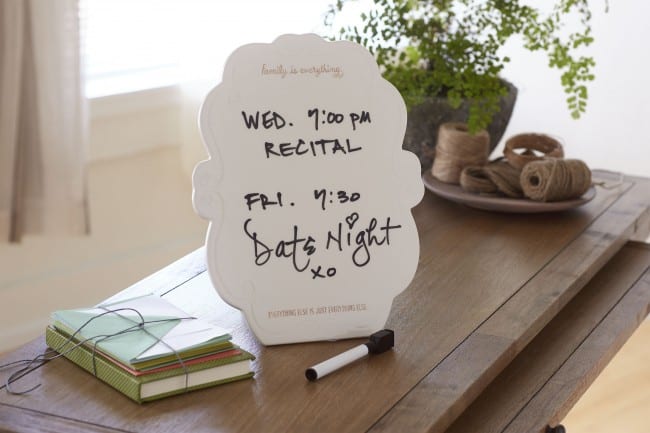 family is everything.
WED. 7:00 PM
RECITAL
FRI. 7:30
Date Night
XO
EVERYTHING ELSE IS JUST EVERYTHING ELSE.